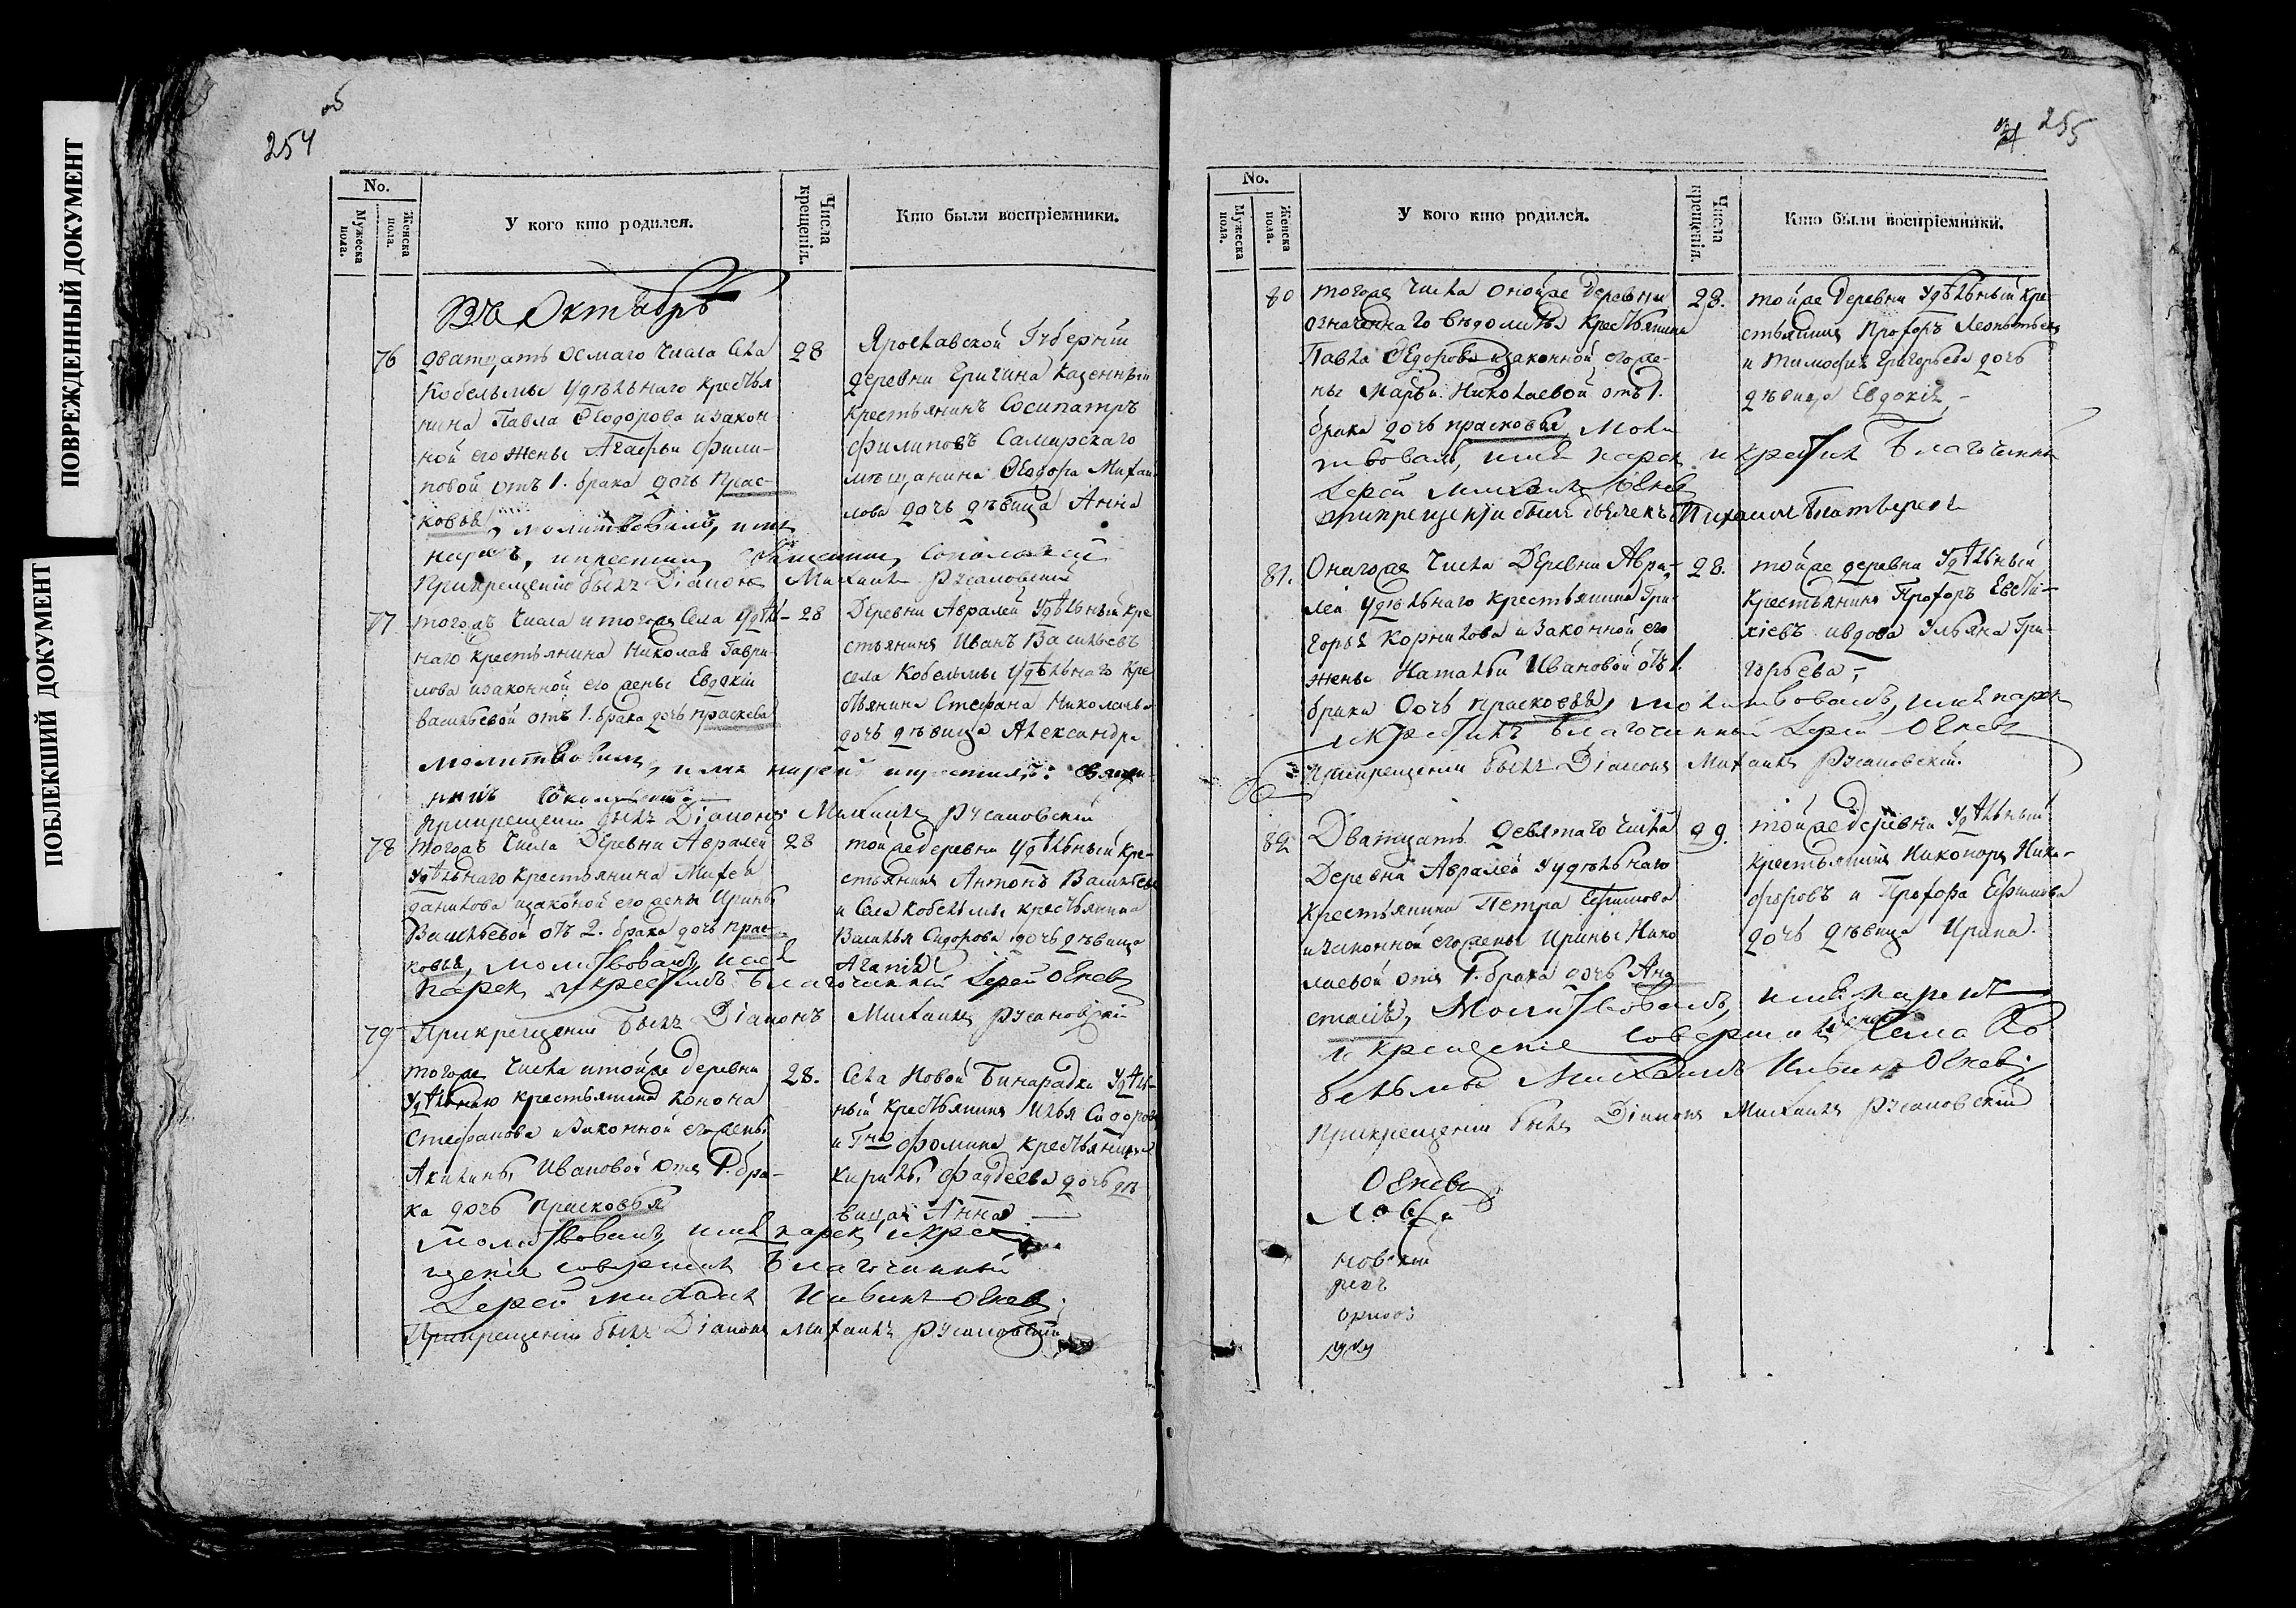 ПОВРЕЖДЕННЫЙ ДОКУМЕНТ
ПОБЛЕКШИЙ ДОКУМЕНТ
254 об
No.
Мужеска пола.
Женска пола.
У кого кто родился.
Числа крещенія.
Кто были воспріемники.
Въ Октябрѣ
76 дватцать осмаго числа села 28
Кобельмы удѣльнаго крестья
нина Павла Ѳеодорова и закон
ной его жены Агафьи Фили-
повой отъ 1. брака дочь Прас-
ковья, молитвовалъ, имя
нарекъ, и крестилъ
При крещеніи былъ Діаконъ Михаилъ Русановскій
Ярославской Губерніи
деревни Еригина Казенный
крестьянинъ Сосипатръ
Филиповъ Самарскаго
мѣщанина Ѳеодора Михаи
лова дочь дѣвица Анна
77 тогожъ числа и тогоже села Удѣль- 28
наго крестьянина Николая Гаври-
лова и законной его жены Евдокіи
Васильевой отъ 1. брака дочь праскева
молитвовалъ, имя нарекъ и крестилъ: Священ-
никъ
При крещеніи былъ Діаконъ Михаилъ Русановскій
Деревни Авралей Удѣльный кре
стьянинъ Иванъ Васильевъ
села Кобельмы Удѣльнаго Кре
стьянина Стефана Николаева
дочь дѣвица Александра
78 тогожъ числа Деревни Авралей 28
Удѣльнаго крестьянина Михея
Данилова и законой его жены Ирины
Васильевой отъ 2. брака дочь прас-
ковья, молитвовалъ, имя
нарекъ и крестилъ Благочинный Іерей Огневъ
тойже деревни Удѣльный Кре-
стьянинъ Антонъ Васильевъ
и Села Кобельмы крестьянина
Василья Сидорова дочь дѣвица
Агапія
79 При крещеніи былъ Діаконъ Михаилъ Русановскій
тогоже числа и тойже деревни 28.
Удѣльнаго крестьянина Конона
Стефанова и законной его жены
Акилины Ивановой отъ 1. бра-
ка дочь Прасковья
молитвовалъ, имя нарекъ и кре
щеніе совершилъ Благочинный
Іерей Михаилъ Ивинъ Огневъ;
При крещеніи былъ Діаконъ Михаилъ Русановскій
Села Новой Бинарадки Удѣль-
ный Крестьянинъ Илья Сидоровъ
и Гна Фомина крестьянина
Кирилы Фаддеева дочь дѣ
вица Анна
255
No.
Мужеска пола.
Женска пола.
У кого кто родился.
Числа крещенія.
Кто были воспріемники.
80 тогоже числа онойже деревни 28.
означеннаго вѣдомства крестьянина
Павла Ѳедорова и законной его же-
ны Марьи Николаевой отъ 1.
брака дочь прасковья, моли
твовалъ, имя нарекъ и крестилъ Благочинный
Іерей Михаилъ Огневъ
При крещеніи былъ дьячекъ Михаилъ
тойже деревни Удѣльный кре
стьянинъ Прохоръ Леонтьевъ
и Тимофея Григорьева дочь
дѣвица Евдокія
81. Онагоже числа Деревни Авра- 28.
лей Удѣльнаго крестьянина Гри-
горья Корнилова и законной его
жены Натальи Ивановой отъ 1.
брака дочь прасковья, молитвовалъ, имя нарекъ
и крестилъ Благочинный Іерей Огневъ
При крещеніи былъ Діаконъ Михаилъ Русановскій.
тойже деревни Удѣльный
крестьянинъ Прохоръ Евсти-
хіевъ и вдова Ульяна Гри-
горьева;
82 Дватцать девятаго числа 29.
Деревни Авралей Удѣльнаго
крестьянина Петра Ефимова
и законной его жены Ирины Нико
лаевой отъ 1. брака дочь Ана
стасія, Молитвовалъ, имя нарекъ
и крещеніе совершилъ села Ко
бельмы Михаилъ Ивинъ Огневъ;
При крещеніи былъ Діаконъ Михаилъ Русановскій
тойже деревни Удѣльный
крестьянинъ Никоноръ Ники-
форовъ и Прохора Ефимова
дочь дѣвица Ирина.
Огневъ
новскій